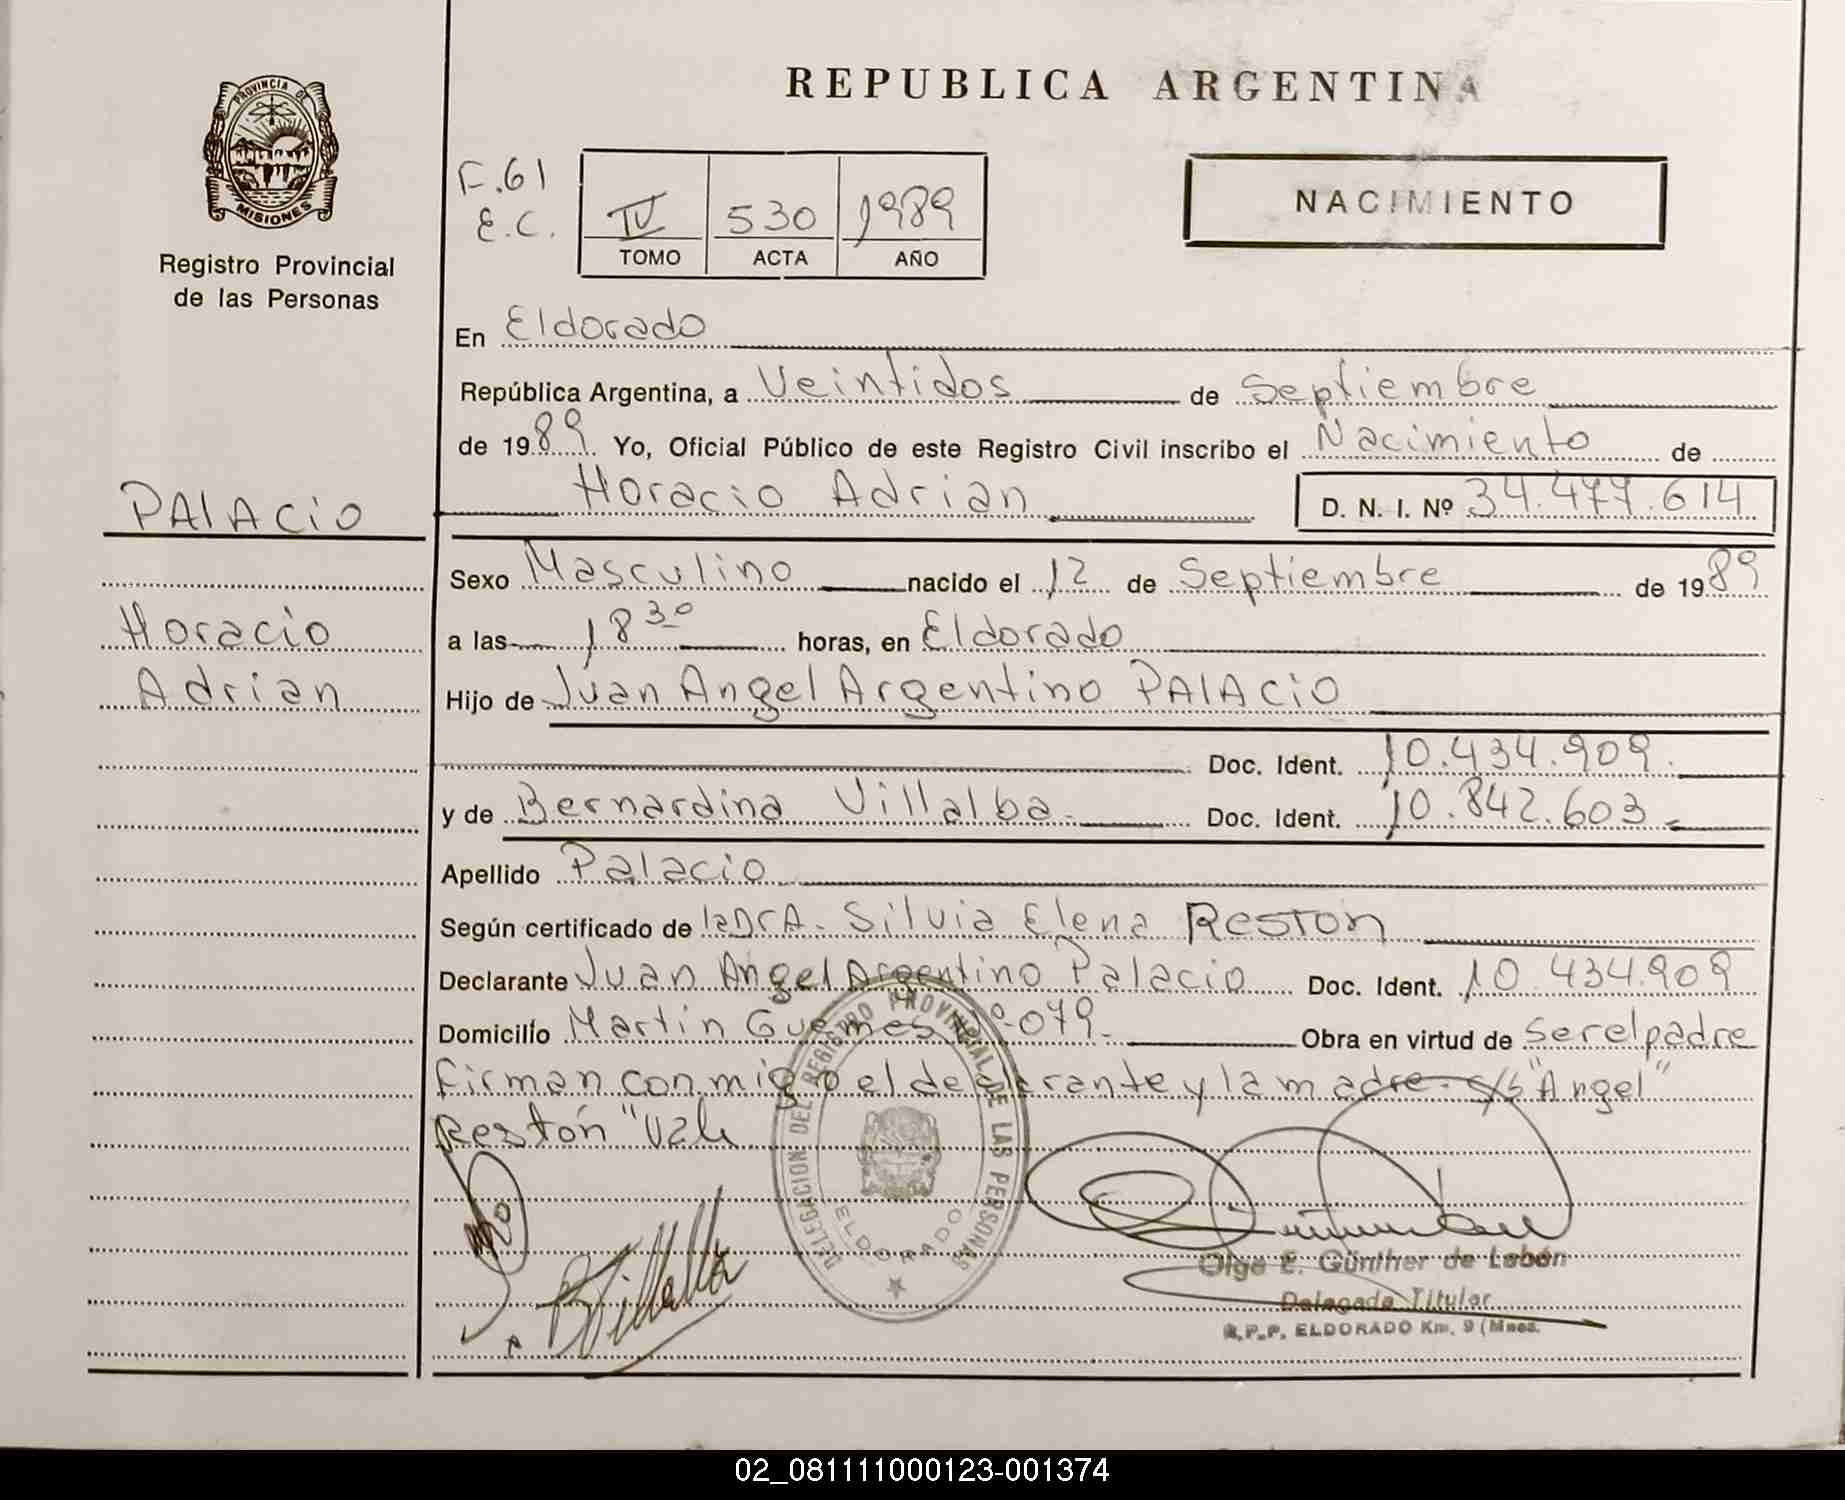 PROVINCIA DE
MISIONES
Registro Provincial
de las Personas
REPUBLICA ARGENTINA
F.61
E.C.
IV 530 1989
TOMO ACTA AÑO
NACIMIENTO
En Eldorado
República Argentina, a Veintidos de Septiembre
de 1989 Yo, Oficial Público de este Registro Civil inscribo el Nacimiento de
Horacio Adrian D. N. I. Nº 34.477.614
PALACiO
Sexo Masculino nacido el 12 de Septiembre de 1989
Horacio
a las 18 30 horas, en Eldorado
Adrian
Hijo de Juan Angel Argentino PALACiO
Doc. Ident. 10.434.909.
y de Bernardina Villalba.- Doc. Ident. 10.842.603.-
Apellido Palacio
Según certificado de la DrA. Silvia Elena Reston
Declarante Juan Angel Argentino Palacio Doc. Ident. 10.434.909
Domicilio Martin Guemes Nº 079.- Obra en virtud de Ser el padre
firman conmigo el declarante y la madre. s/b "Angel"
Restón "Vale
DELEGACION DEL REGISTRO PROVINCIAL DE LAS PERSONAS
ELDORADO
B Villalba
Olga E. Günther de Labán
Delegada Titular
R.P.P. ELDORADO Km. 9 (Mnes.
02_081111000123-001374